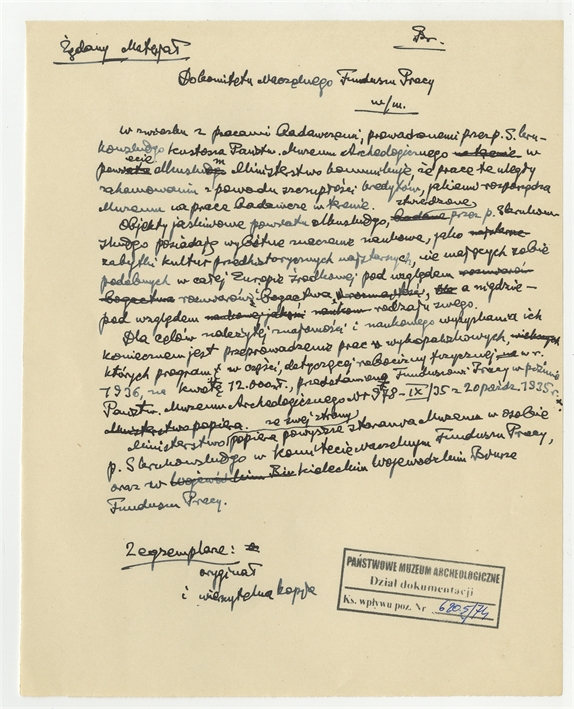 Żądany Materjał
Br.
Do Komitetu Naczelnego Funduszu Pracy
w/m.
W związku z pracami badawczemi, prowadzonemi przez p. S. Kru-
kowskiego Kustosza Państw. Muzeum Archeologicznego w
powiecie Olkuskim Ministerstwo komunikuje, że prace te uległy
zahamowaniu z powodu szczupłości kredytów, jakiemi rozporządza
Muzeum na prace badawcze w terenie.
Objekty jaskiniowe powiatu olkuskiego, zbadane przez p. Krukow-
skiego posiadają wybitne znaczenie naukowe, jako
zabytki kultur przedhistorycznych najstarszych, nie mających sobie
podobnych w całej Europie Środkowej pod względem
bogactwa rozmiarów i bogactwa, a niędzie-
pod względem rodzaju swego.
Dla celów należytej znajomości i naukowego wyzyskania ich
koniecznem jest przeprowadzenie prac wykopaliskowych,
których program, w części, dotyczącej robocizny fizycznej w r.
1936, na kwotę 12.000 zł., przedstawiono Funduszowi Pracy w piśmie
Państw. Muzeum Archeologicznego Nr 978-IX/35 z 20 paźdz. 1935 r.
Ministerstwo popiera ze swej strony
Ministerstwo popiera powyższe starania Muzeum w osobie
p. Krukowskiego w Komitecie Naczelnym Funduszu Pracy,
oraz w Kieleckim Wojewódzkim Biurze
Funduszu Pracy.
2 egzemplarze:
oryginał
i wierzytelna kopja
PAŃSTWOWE MUZEUM ARCHEOLOGICZNE
Dział dokumentacji
Ks. wpływu poz. Nr 6805/74